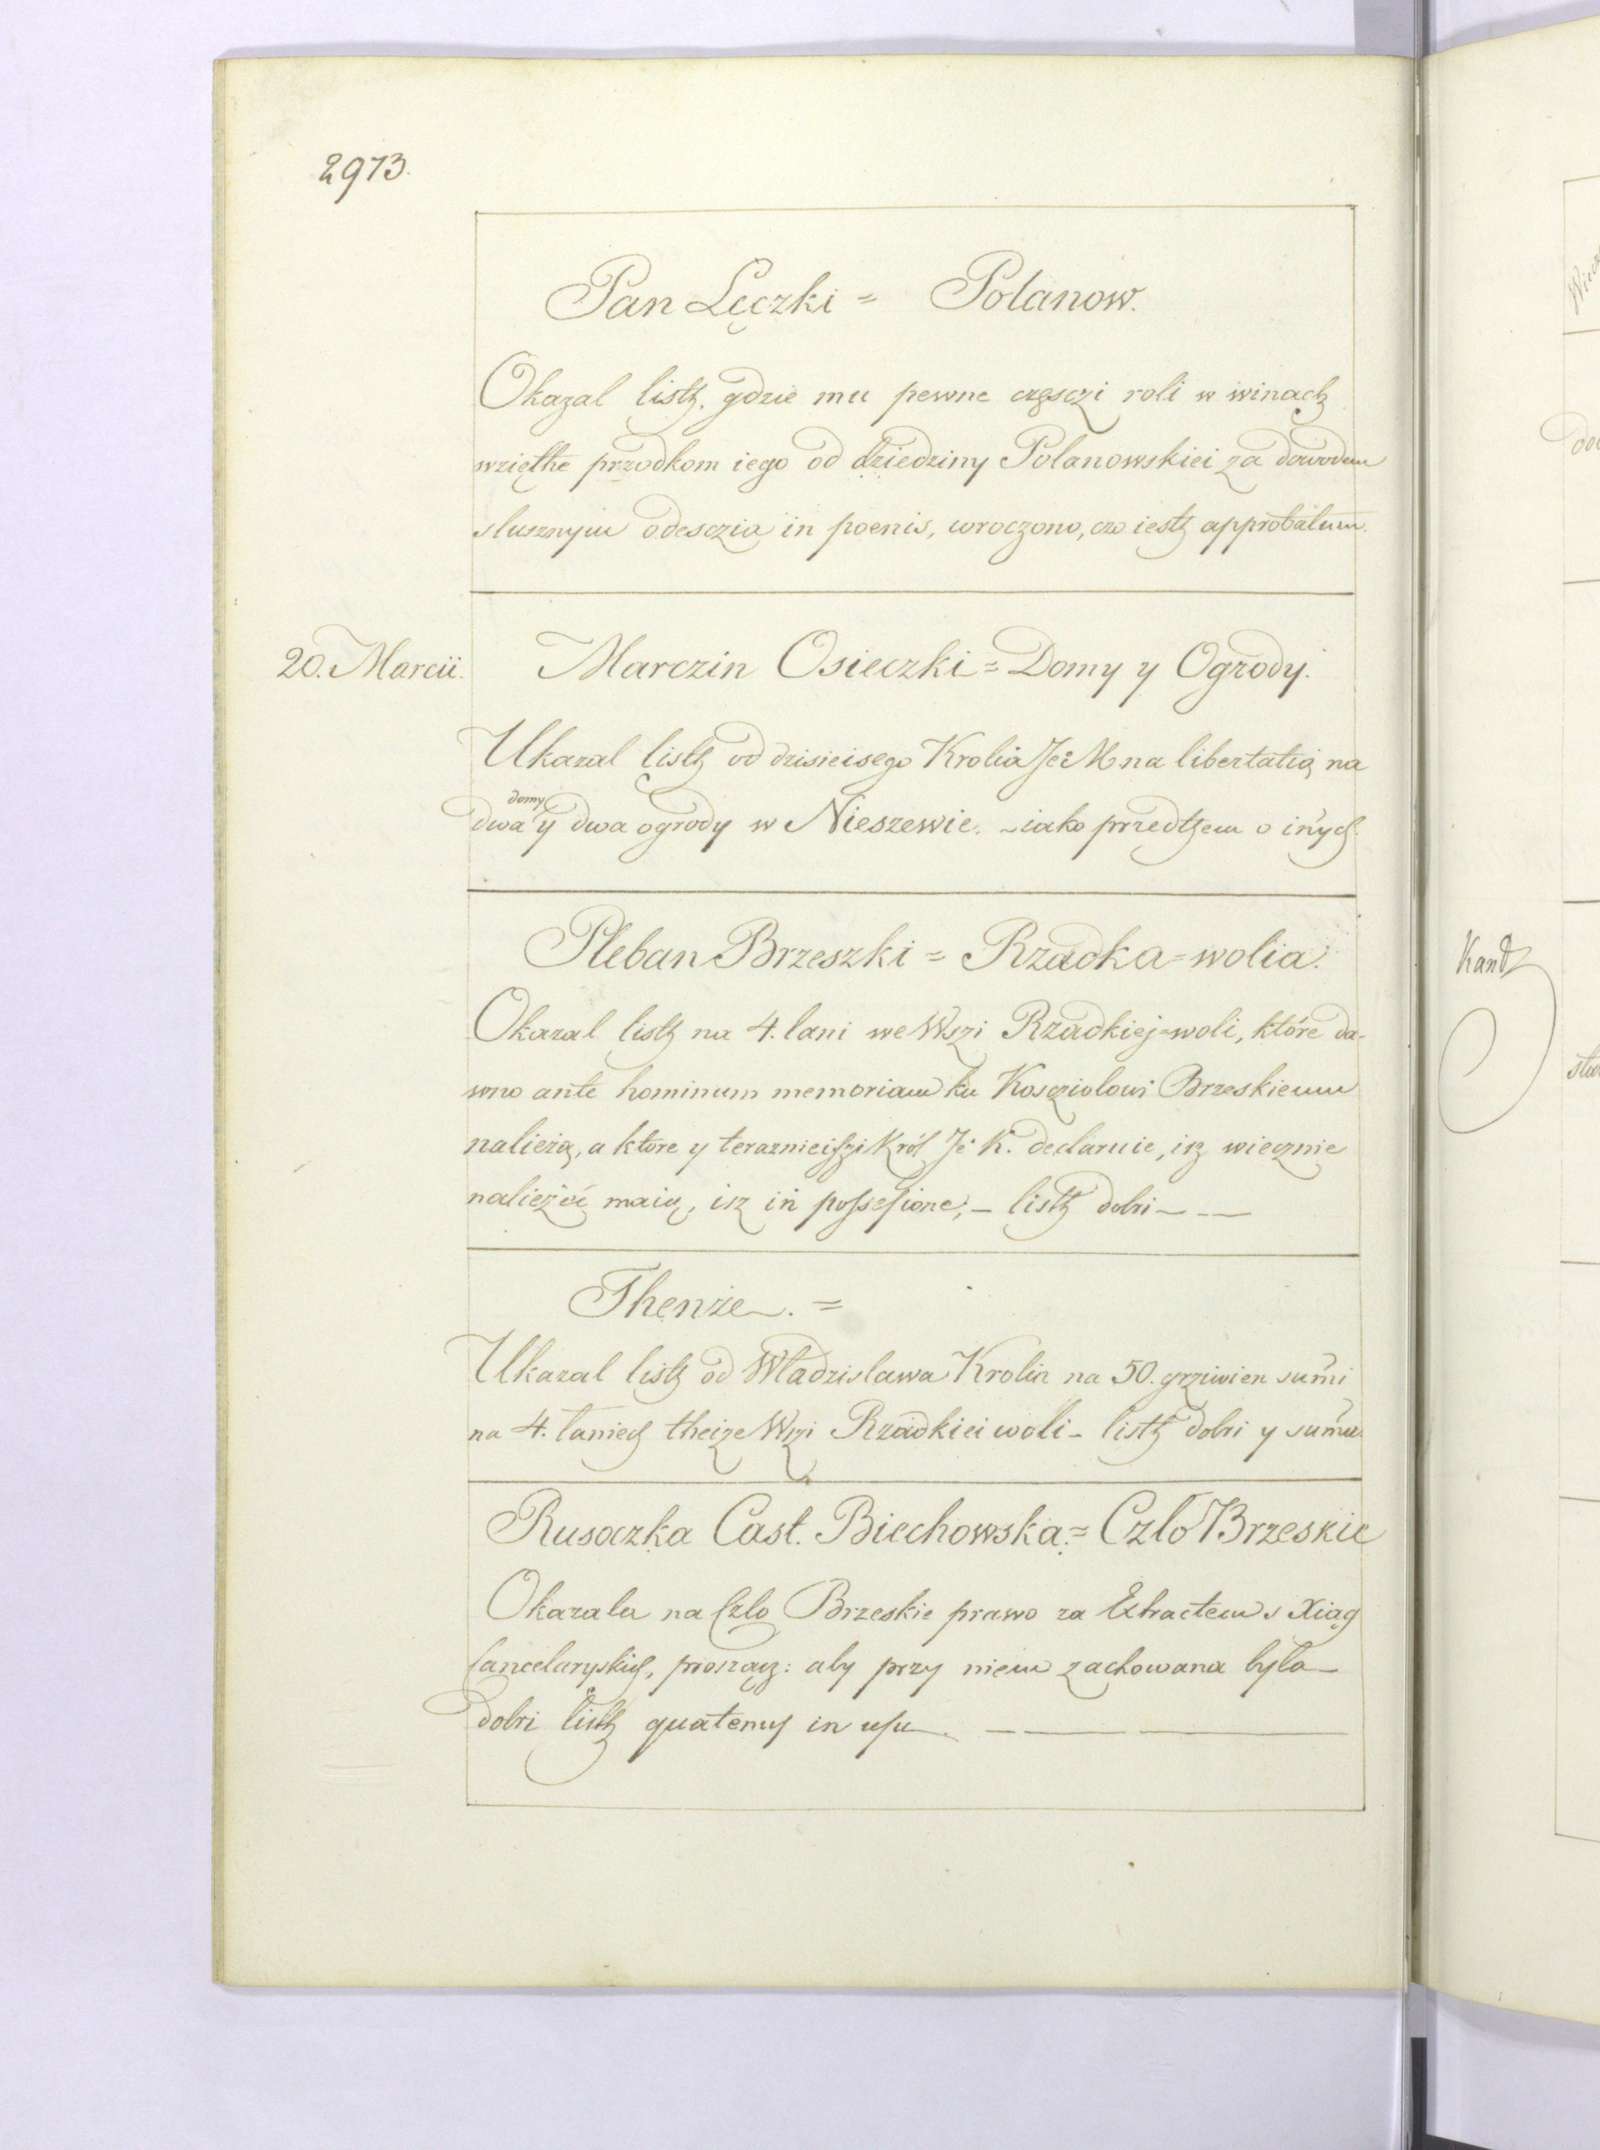 2973.
Pan Lęczki = Polanow.
Okazal listh. gdzie mu pewne częsczi roli w winach
wzięthe przodkom iego od dziedziny Polanowskiei za dowodem
slusznym odesczia in poenis, wroczono, czo iesth approbatum.
20. Marcii. Marczin Osieczki = Domy y Ogrody.
Ukazal listh od dzisieisego Krolia Jeº M na libertatią na
domy
dwa y dwa ogrody w Nieszewie. – iako przedthem o inych.
Pleban Brzeszki = Rzadka = wolia.
Okazal listh na 4. lani we Wszi Rzadkiej = woli, które da-
wno ante hominum memoriam ku Koscziolowi Brzeskiemu
nalieżą, a które y teraznieiszi Król Jº K. declaruie, isz wiecznie
nalieżéć maią, isz in possesione; – listh dobri – – –
Thenże. =
Ukazal listh od Wladzislawa Krolia na 50. grziwien sumi
na 4. laniech theize Wszi Rzadkiei woli – listh dobri y suma
Rusoczka Cast. Biechowska. = Czlo Brzeskie
Okazala na Czlo Brzeskie prawo za Extractem s Xiąg
Cancelaryskich, prosząc: aby przy niem zachowana byla –
dobri listh quatenus in usu. – – –
Kandt